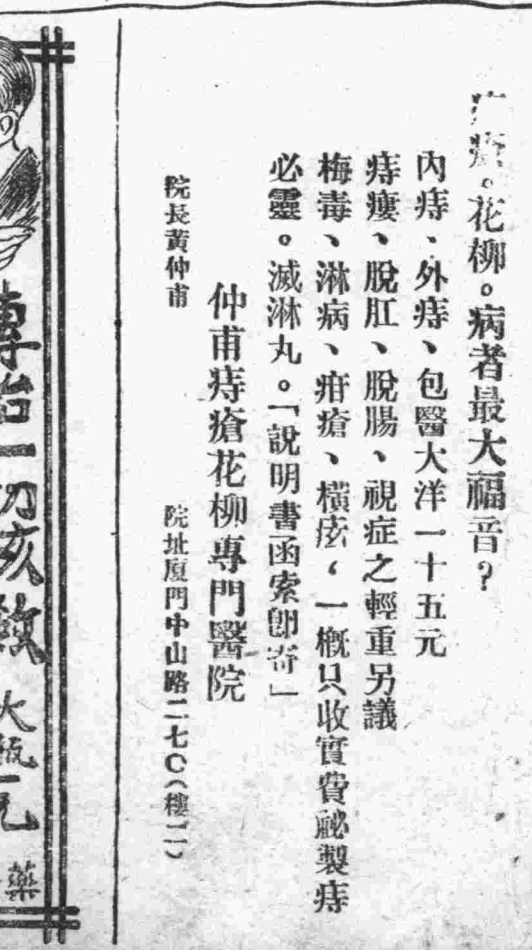 花柳。病者最大福音？
內痔、外痔、包醫大洋一十五元
痔瘻、脫肛、脫腸、視症之輕重另議
梅毒、淋病、疳瘡、橫痃，一概只收實費祕製痔
必靈。滅淋丸。「說明書函索卽寄」
仲甫痔瘡花柳專門醫院
院長黃仲甫
院址厦門中山路二七〇（樓二）
專治一切咳
大瓶一元
藥